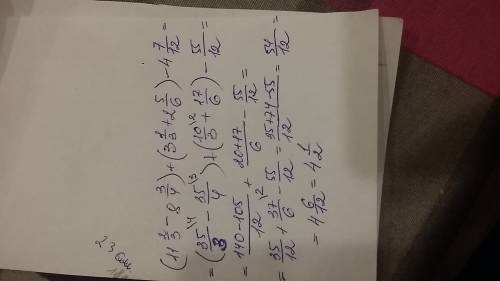 23
(11 2/3 - 8 3/4) + (3 1/3 + 2 5/6) - 4 7/12 =
= (35/3 \4 - 35/4 \3) + (10/3 \2 + 17/6) - 55/12 =
= 140-105/12 + 20+17/6 - 55/12 =
= 35/12 + 37/6 \2 - 55/12 = 35+74-55/12 = 54/12 =
= 4 6/12 = 4 1/2